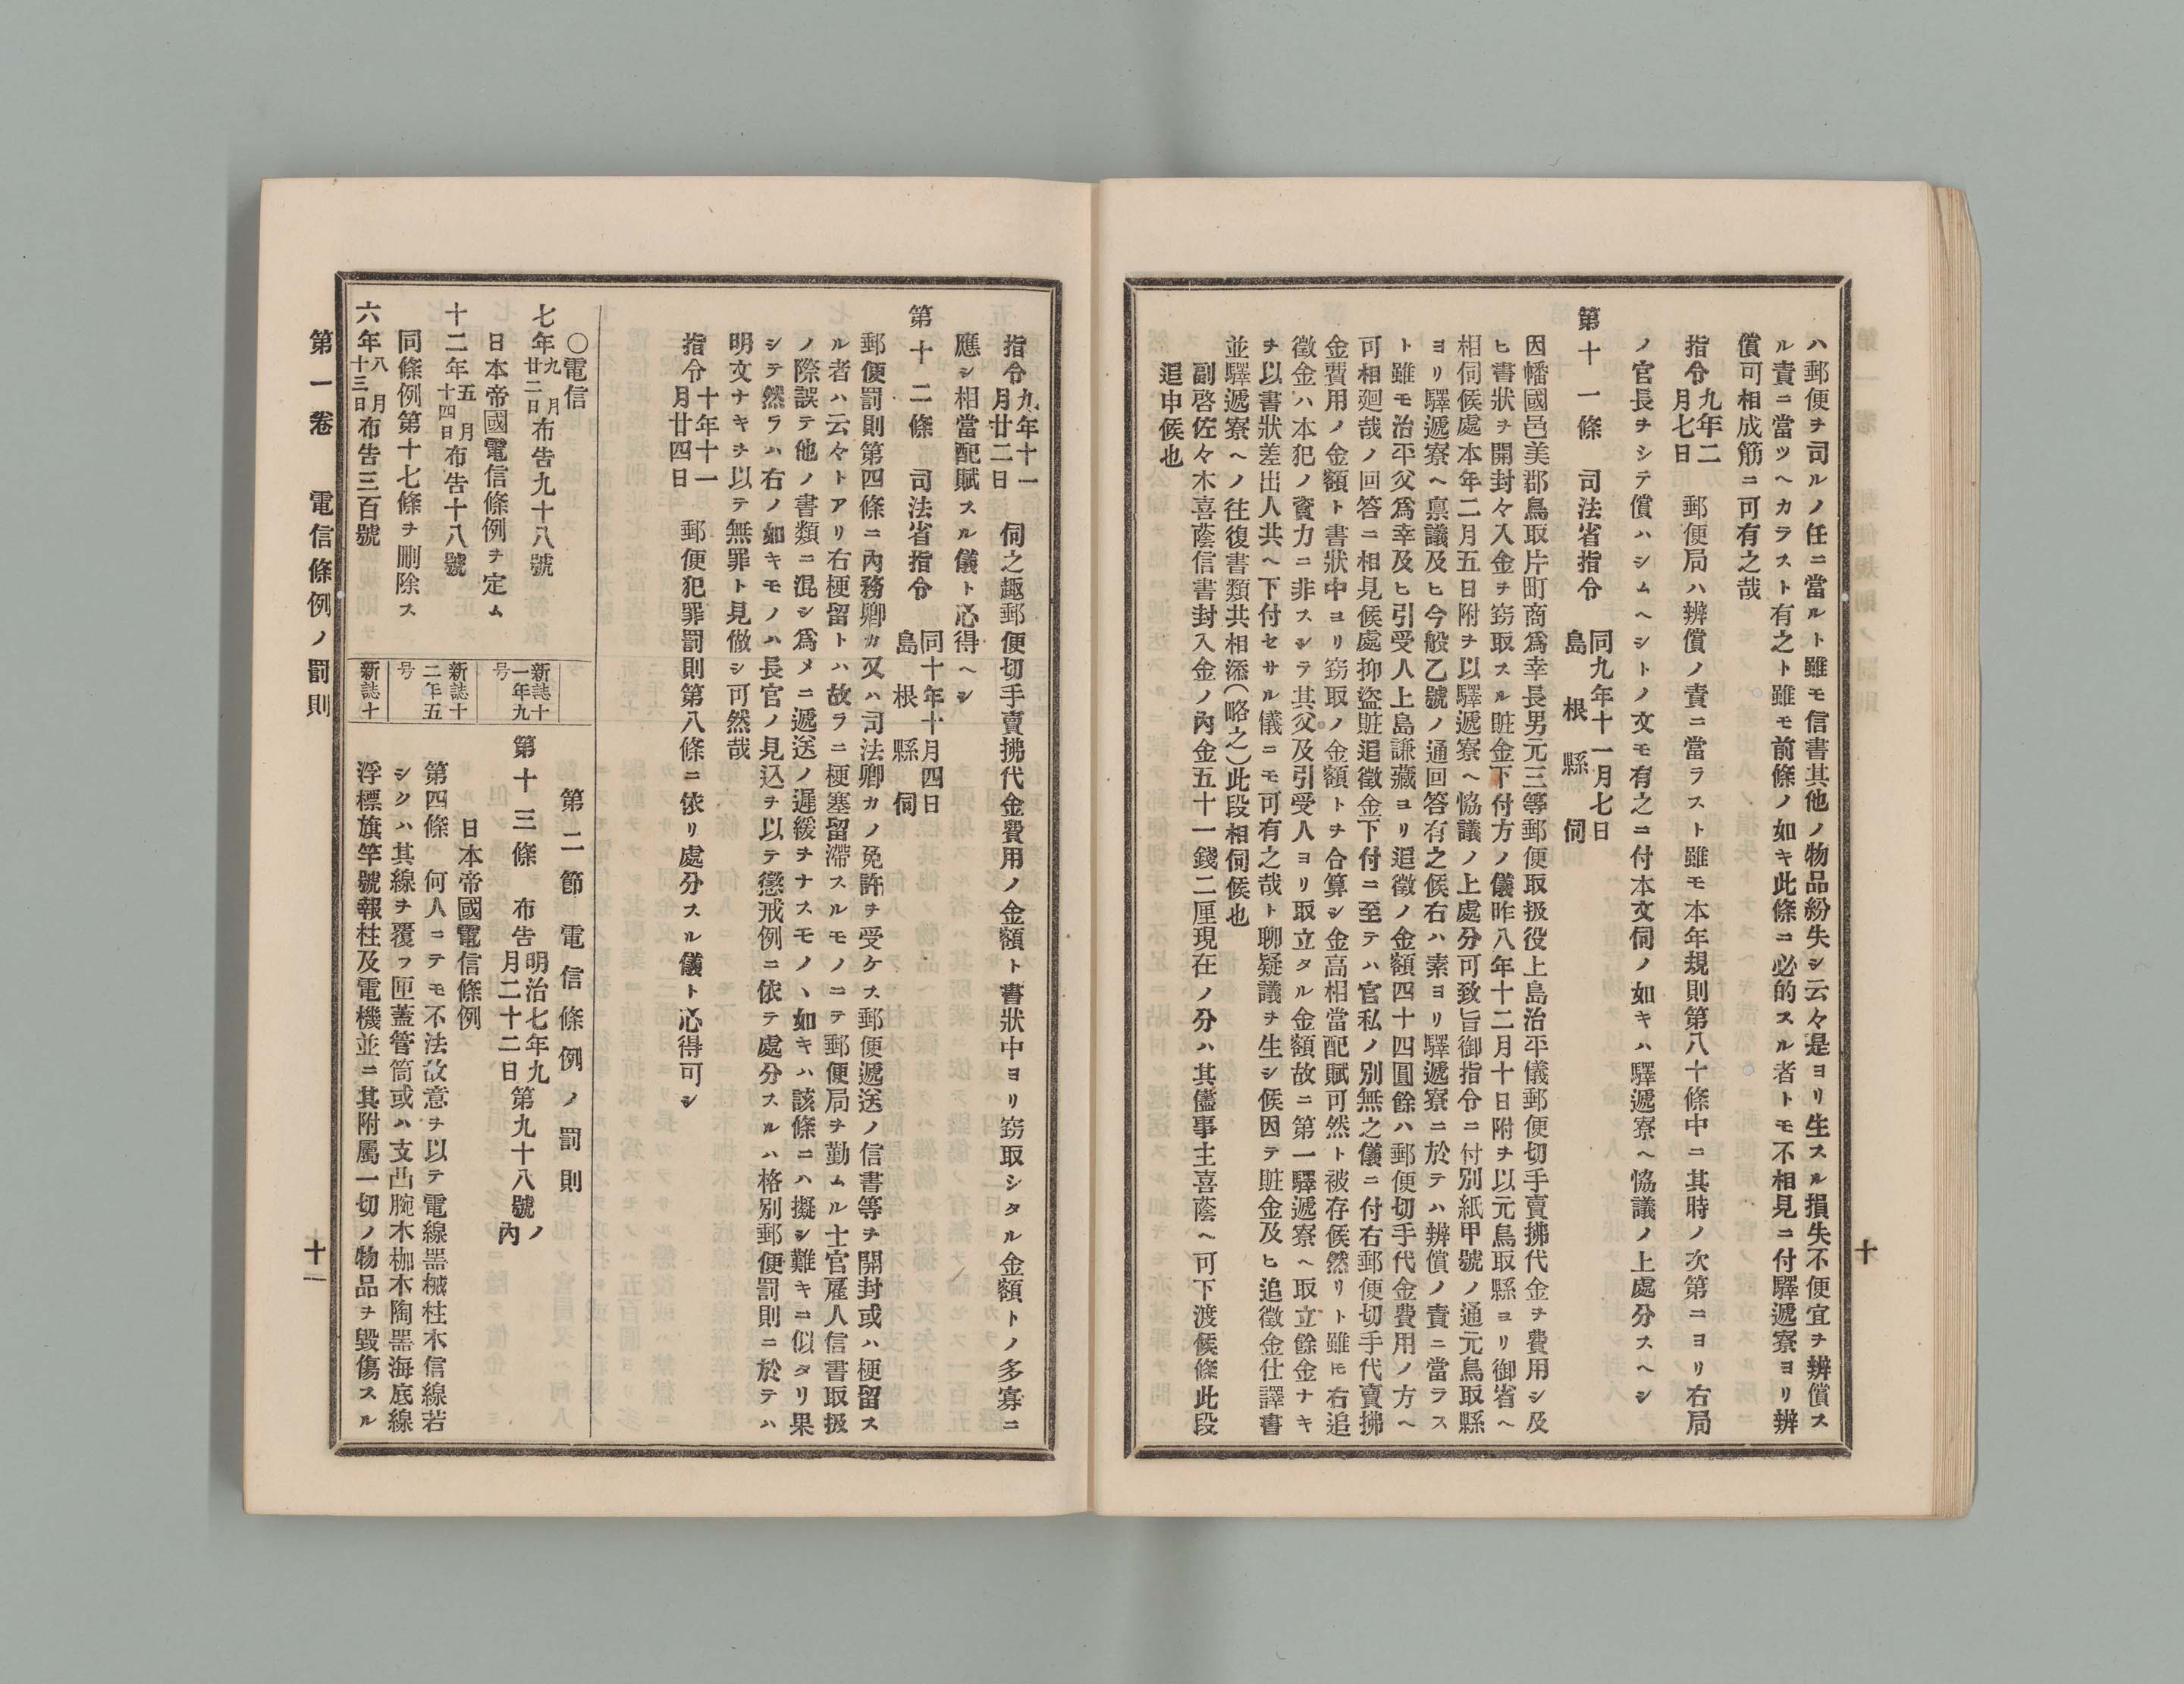 十
ハ郵便ヲ司ルノ任ニ當ルト雖モ信書其他ノ物品紛失シ云々是ヨリ生スル損失不便宜ヲ辨償ス
ル責ニ當ツヘカラスト有之ト雖モ前條ノ如キ此條ニ必的スル者トモ不相見ニ付驛遞寮ヨリ辨
償可相成筋ニ可有之哉
指令九年二月七日 郵便局ハ辨償ノ責ニ當ラスト雖モ本年規則第八十條中ニ其時ノ次第ニヨリ右局
ノ官長ヲシテ償ハシムヘシトノ文モ有之ニ付本文伺ノ如キハ驛遞寮ヘ恊議ノ上處分スヘシ
第十一條 司法省指令 同九年十一月七日
島根縣伺
因幡國邑美郡鳥取片町商爲幸長男元三等郵便取扱役上島治平儀郵便切手賣拂代金ヲ費用シ及
ヒ書狀ヲ開封々入金ヲ窃取スル賍金下付方ノ儀昨八年十二月十日附ヲ以元鳥取縣ヨリ御省ヘ
相伺候處本年二月五日附ヲ以驛遞寮ヘ恊議ノ上處分可致旨御指令ニ付別紙甲號ノ通元鳥取縣
ヨリ驛遞寮ヘ禀議及ヒ今般乙號ノ通回答有之候右ハ素ヨリ驛遞寮ニ於テハ辨償ノ責ニ當ラス
ト雖モ治平父爲幸及ヒ引受人上島謙藏ヨリ追徵ノ金額四十四圓餘ハ郵便切手代金費用ノ方ヘ
可相廻哉ノ回答ニ相見候處抑盜賍追徵金下付ニ至テハ官私ノ別無之儀ニ付右郵便切手代賣拂
金費用ノ金額ト書狀中ヨリ窃取ノ金額トヲ合算シ金高相當配賦可然ト被存候然リト雖モ右追
徵金ハ本犯ノ資力ニ非スシテ其父及引受人ヨリ取立タル金額故ニ第一驛遞寮ヘ取立餘金ナキ
ヲ以書狀差出人共ヘ下付セサル儀ニモ可有之哉ト聊疑議ヲ生シ候因テ賍金及ヒ追徵金仕譯書
並驛遞寮ヘノ往復書類共相添(略之)此段相伺候也
副啓佐々木喜蔭信書封入金ノ內金五十一錢二厘現在ノ分ハ其儘事主喜蔭ヘ可下渡候條此段
追申候也
指令九年十一月廿二日 伺之趣郵便切手賣拂代金費用ノ金額ト書狀中ヨリ窃取シタル金額トノ多寡ニ
應シ相當配賦スル儀ト心得ヘシ
第十二條 司法省指令 同十年十月四日
島根縣伺
郵便罰則第四條ニ內務卿カ又ハ司法卿カノ免許ヲ受ケス郵便遞送ノ信書等ヲ開封或ハ梗留ス
ル者ハ云々トアリ右梗留トハ故ラニ梗塞留滯スルモノニテ郵便局ヲ勤ムル士官雇人信書取扱
ノ際誤テ他ノ書類ニ混シ爲メニ遞送ノ遲緩ヲナスモノヽ如キハ該條ニハ擬シ難キニ似タリ果
シテ然ラハ右ノ如キモノハ長官ノ見込ヲ以テ懲戒例ニ依テ處分スルハ格別郵便罰則ニ於テハ
明文ナキヲ以テ無罪ト見做シ可然哉
指令十年十一月廿四日 郵便犯罪罰則第八條ニ依リ處分スル儀ト心得可シ
○電信
七年九月廿二日布告九十八號
日本帝國電信條例ヲ定ム
十二年五月十四日布告十八號
同條例第十七條ヲ刪除ス
六年八月十三日布告三百號
新誌十一年九号
新誌十二年五号
新誌十
第二節 電信條例ノ罰則
第十三條 布告明治七年九月二十二日第九十八號ノ內
日本帝國電信條例
第四條 何人ニテモ不法故意ヲ以テ電線噐械柱木信線若
シクハ其線ヲ覆フ匣蓋管筒或ハ支凸腕木枷木陶噐海底線
浮標旗竿號報柱及電機並ニ其附屬一切ノ物品ヲ毀傷スル
第一卷 電信條例ノ罰則
十一